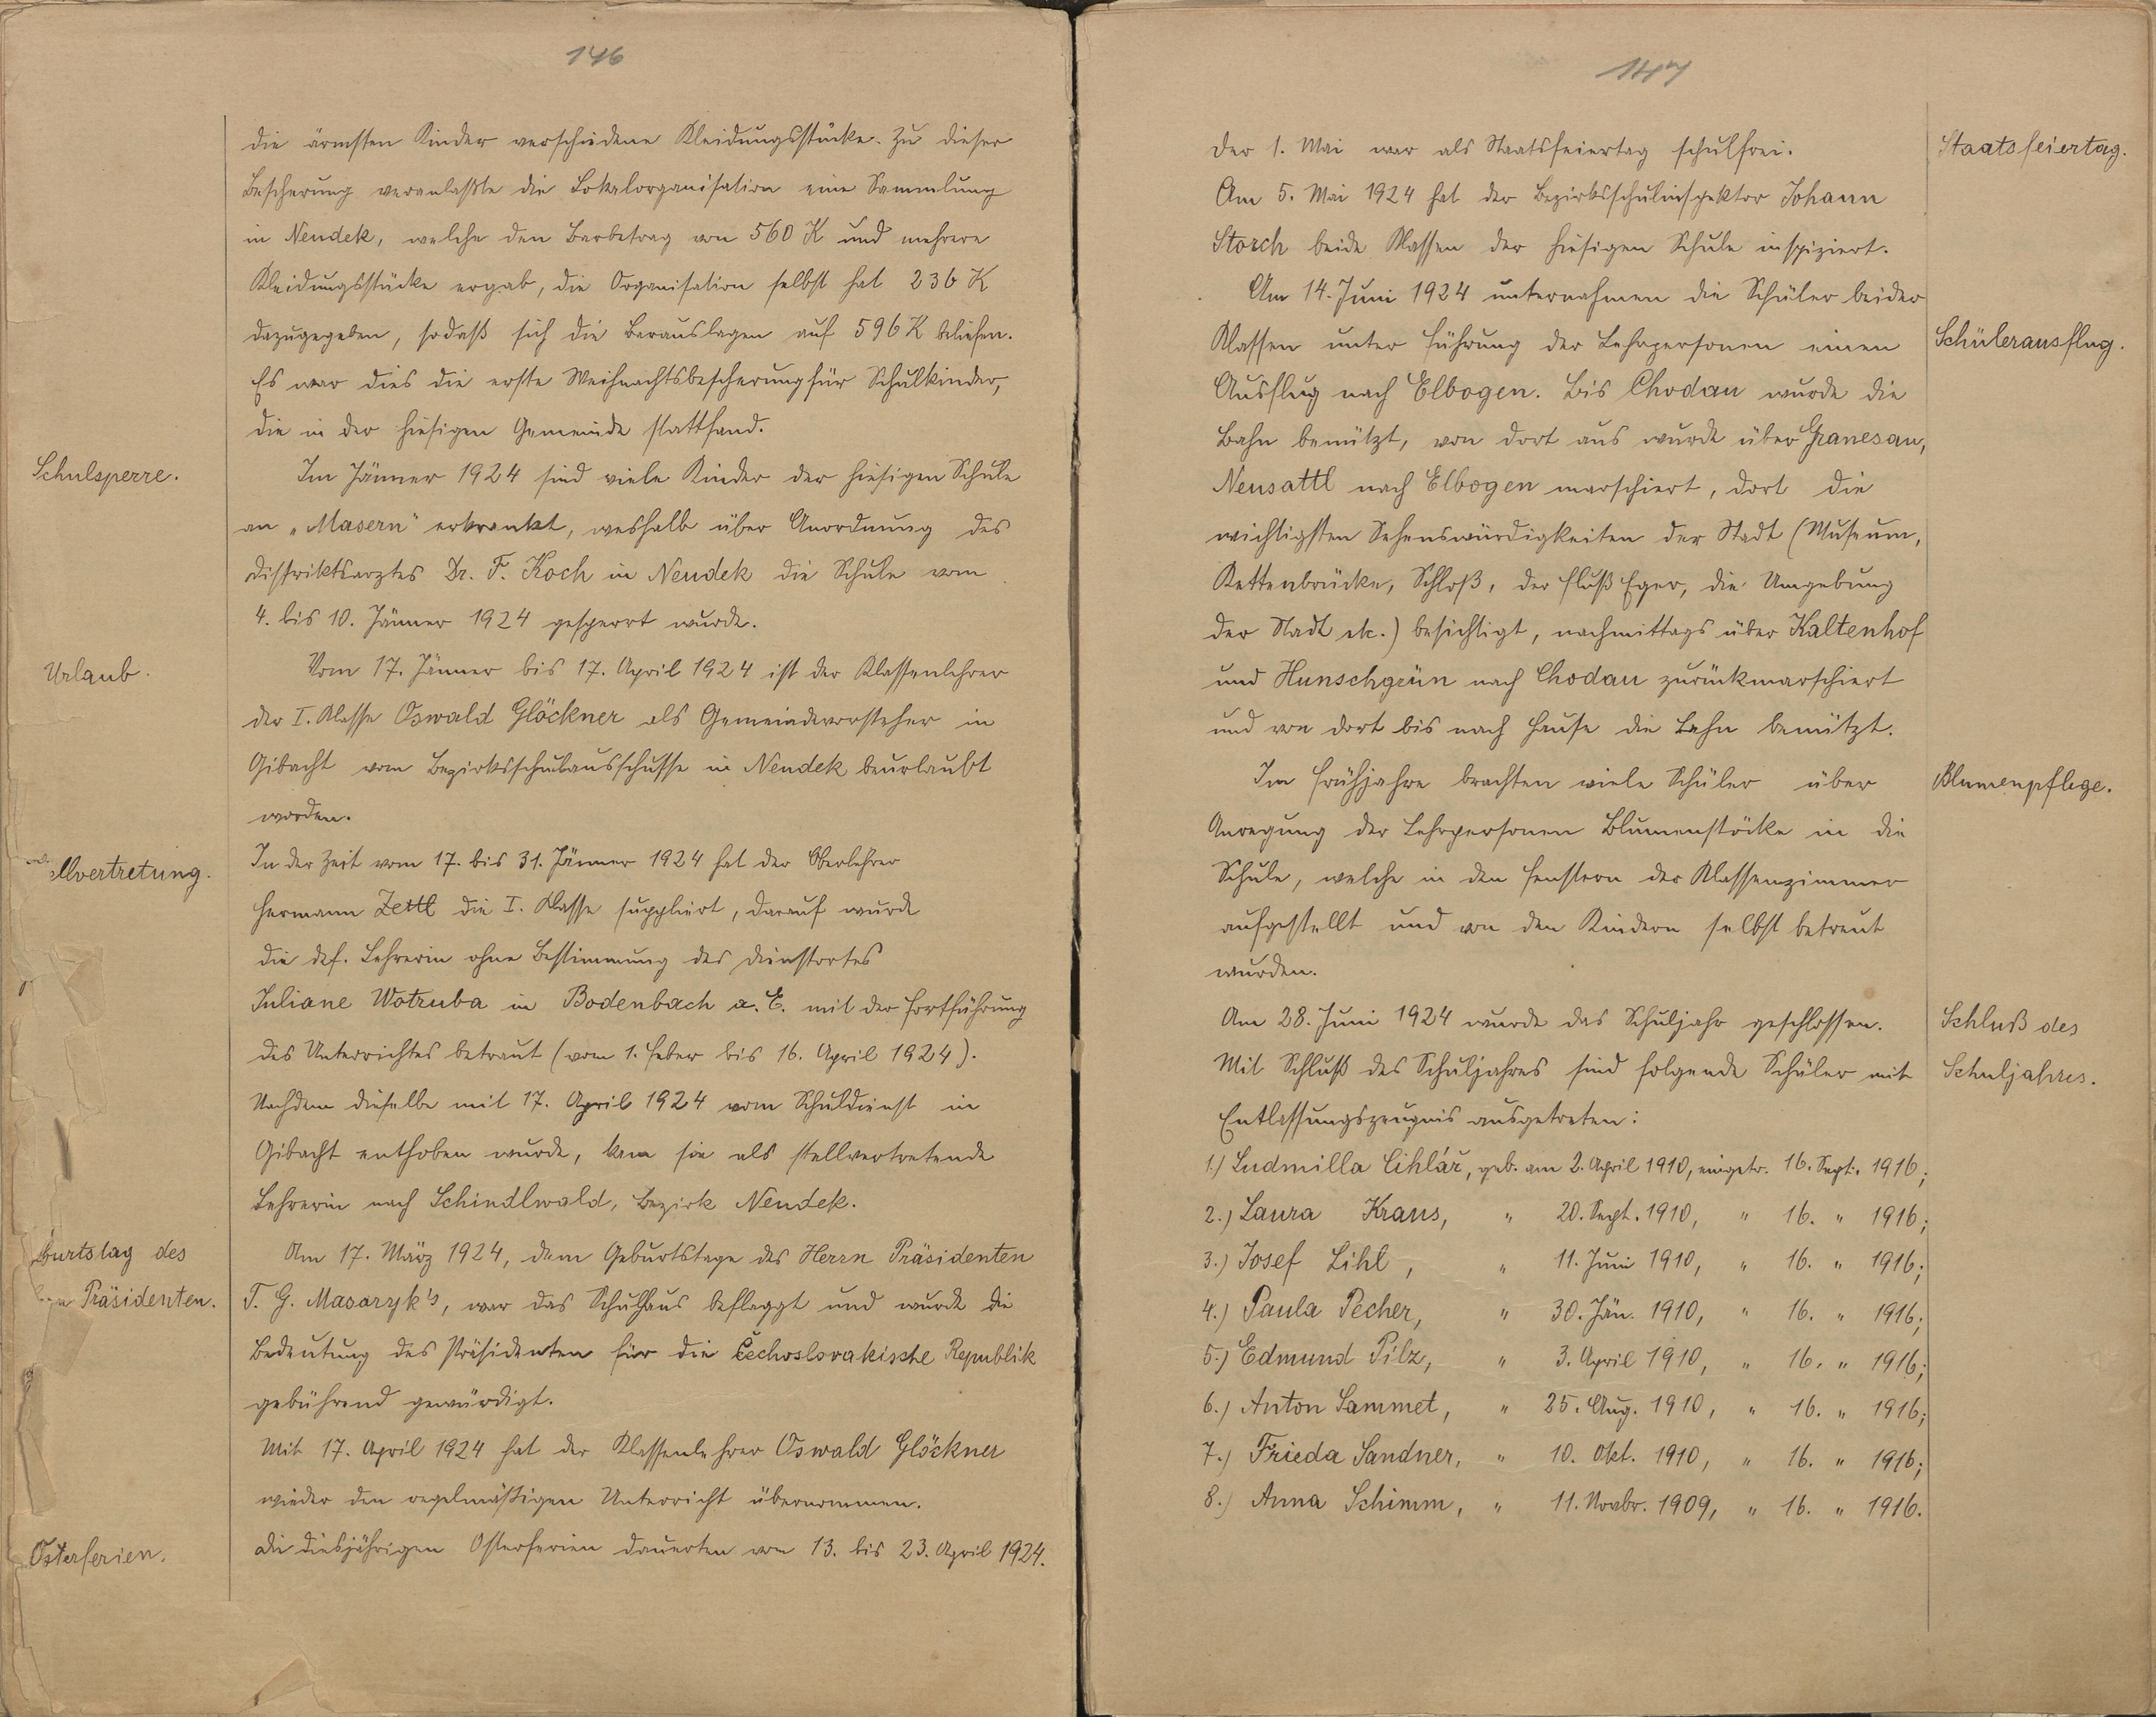 146
die ärmsten Kinder verschiedene Kleidungsstücke. Zu dieser
Bescherung veranlaßte die Lokalorganisation eine Sammlung
in Neudek, welche den Barbetrag von 560 K und mehrere
Kleidungsstücke ergab, die Organisation selbst hat 236 K
dazugegeben, sodaß sich die Barauslagen auf 596 K beliefen.
Es war dies die erste Weihnachtsbescherung für Schulkinder,
die in der hiesigen Gemeinde stattfand.
Schulsperre.
Im Jänner 1924 sind viele Kinder der hiesigen Schule
an „Masern" erkrankt, weshalb über Anordnung des
Distriktsarztes Dr. F. Koch in Neudek die Schule vom
4. bis 10. Jänner 1924 gesperrt wurde.
Urlaub.
Vom 17. Jänner bis 17. April 1924 ist der Klassenlehrer
der I. Klasse Oswald Glöckner als Gemeindevorsteher in
Gibacht vom Bezirksschulausschusse in Neudek beurlaubt
worden.
llvertretung.
In der Zeit vom 17. bis 31. Jänner 1924 hat der Oberlehrer
Hermann Zettl die I. Klasse suppliert, darauf wurde
die def. Lehrerin ohne Bestimmung des Dienstortes
Juliane Wotruba in Bodenbach a. E. mit der Fortführung
des Unterrichtes betraut (vom 1. Feber bis 16. April 1924).
Nachdem dieselbe mit 17. April 1924 vom Schuldienst in
Gibacht enthoben wurde, kam sie als stellvertretende
Lehrerin nach Schindlwald, Bezirk Neudek.
burtstag des
Präsidenten.
Am 17. März 1924, dem Geburtstage des Herrn Präsidenten
T. G. Masaryk's, war das Schulhaus beflaggt und wurde die
Bedeutung des Präsidenten für die Čechoslovakische Republik
gebührend gewürdigt.
Mit 17. April 1924 hat der Klassenlehrer Oswald Glöckner
wieder den regelmäßigen Unterricht übernommen.
Osterferien.
Die diesjährigen Osterferien dauerten vom 13. bis 23. April 1924.
147
Der 1. Mai war als Staatsfeiertag schulfrei.
Staatsfeiertag.
Am 5. Mai 1924 hat der Bezirksschulinspektor Johann
Storch beide Klassen der hiesigen Schule inspiziert.
Am 14. Juni 1924 unternahmen die Schüler beider
Klassen unter Führung der Lehrpersonen einen
Schülerausflug.
Ausflug nach Elbogen. Bis Chodau wurde die
Bahn benützt, von dort aus wurde über Granesau,
Neusattl nach Elbogen marschiert, dort die
wichtigsten Sehenswürdigkeiten der Stadt (Museum,
Kettenbrücke, Schloß, der Fluß Eger, die Umgebung
der Stadt etc.) besichtigt, nachmittags über Kaltenhof
und Hunschgrün nach Chodau zurückmarschiert
und von dort bis nach Hause die Bahn benützt.
Im Frühjahre brachten viele Schüler über
Blumenpflege.
Anregung der Lehrpersonen Blumenstöcke in die
Schule, welche in den Fenstern der Klassenzimmer
aufgestellt und von den Kindern selbst betreut
wurden.
Am 28. Juni 1924 wurde das Schuljahr geschlossen.
Schluß des
Schuljahres.
Mit Schluß des Schuljahres sind folgende Schüler mit
Entlassungszeugnis ausgetreten:
1.) Ludmilla Cihlář, geb. am 2. April 1910, eingetr. 16. Sept. 1916;
2.) Laura Kraus, " 20. Sept. 1910, " 16. " 1916;
3.) Josef Lihl, " 11. Juni 1910, " 16. " 1916;
4.) Paula Pecher, " 30. Jän. 1910, " 16. " 1916;
5.) Edmund Pilz, " 3. April 1910, " 16. " 1916;
6.) Anton Sammet, " 25. Aug. 1910, " 16. " 1916;
7.) Frieda Sandner, " 10. Okt. 1910, " 16. " 1916;
8.) Anna Schimm, " 11. Novbr. 1909, " 16. " 1916.